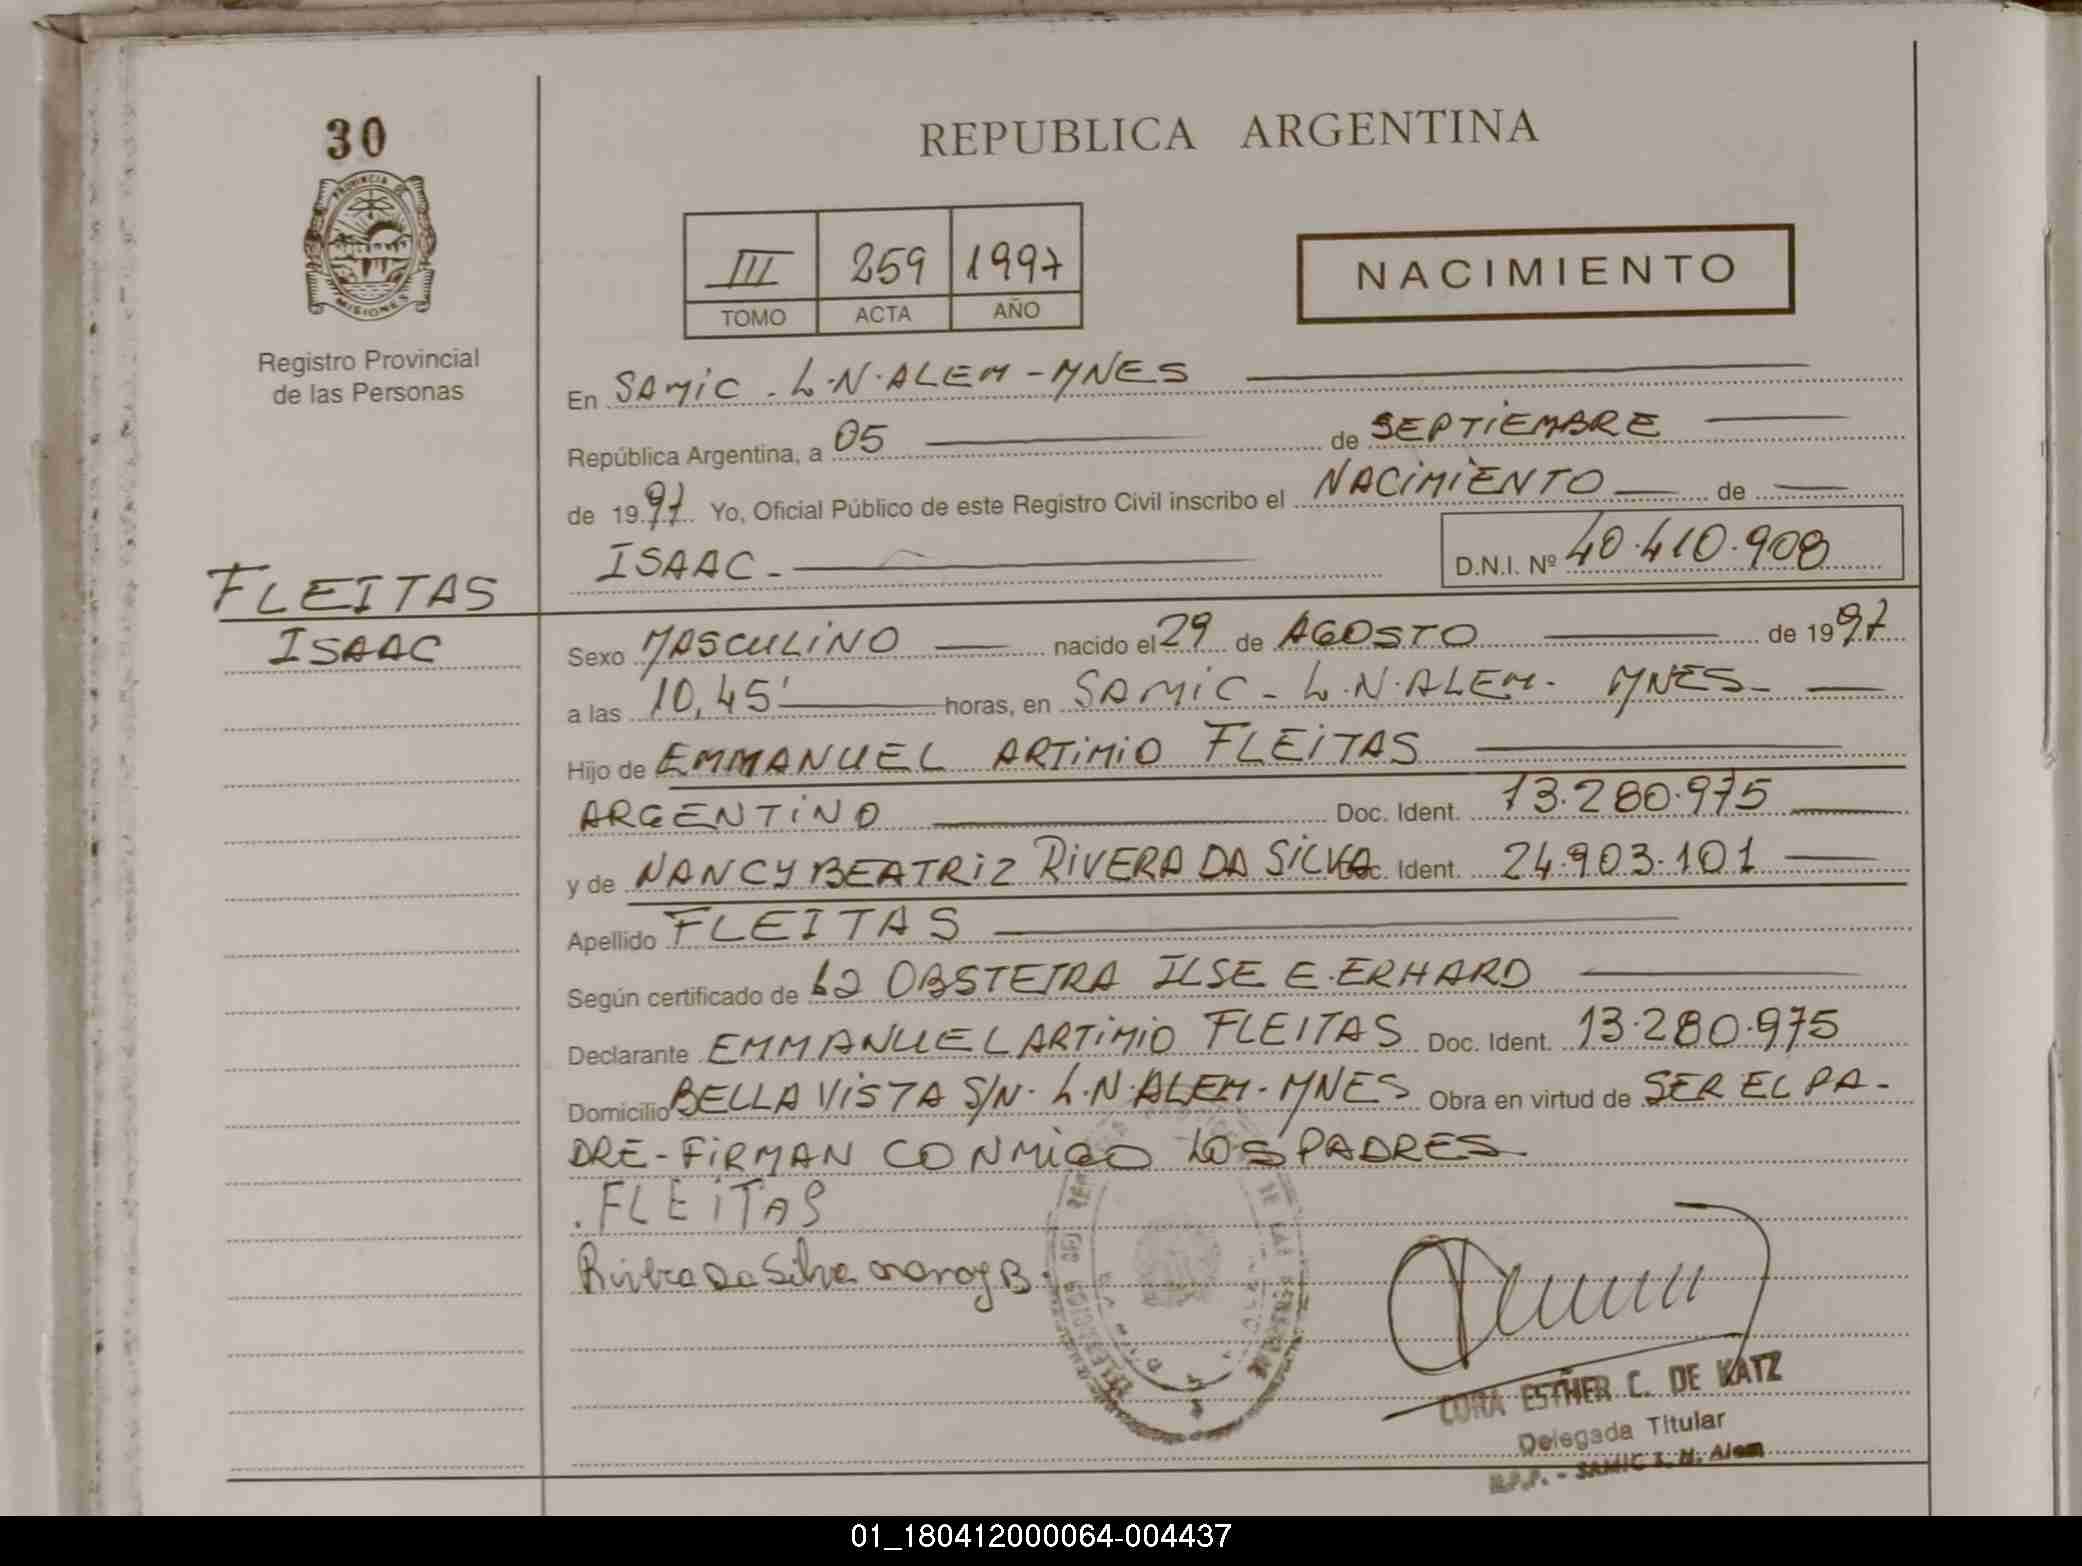 30
PROVINCIA DE
MISIONES
Registro Provincial
de las Personas
FLEITAS
ISAAC
REPUBLICA ARGENTINA
III 259 1997
TOMO ACTA AÑO
NACIMIENTO
En SAMIC - L.N. ALEM - MNES
República Argentina, a 05 de SEPTIEMBRE
de 1997 Yo, Oficial Público de este Registro Civil inscribo el NACIMIENTO de
ISAAC - D.N.I. Nº 40.410.908
Sexo MASCULINO nacido el 29 de AGOSTO de 1997
a las 10,45' horas, en SAMIC - L.N. ALEM - MNES -
Hijo de EMMANUEL ARTIMIO FLEITAS
ARGENTINO Doc. Ident. 13.280.975
y de NANCY BEATRIZ RIVERA DA SILVA Doc. Ident. 24.903.101
Apellido FLEITAS
Según certificado de La OBSTETRA ILSE E. ERHARD
Declarante EMMANUEL ARTIMIO FLEITAS Doc. Ident. 13.280.975
Domicilio BELLA VISTA S/N - L.N. ALEM - MNES Obra en virtud de SER EL PA-
DRE - FIRMAN CONMIGO LOS PADRES
FLEITAS
Rivera Da Silva Nancy B.
CORA ESTHER C. DE KATZ
Delegada Titular
R.P.P. - SAMIC L. N. Alem
01_180412000064-004437